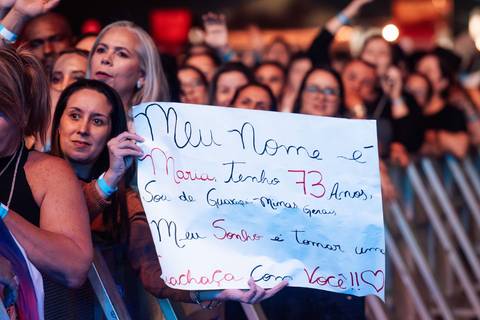 Meu nome é
Maria, tenho 73 Anos,
Sou de Guaxupé-Minas Gerais,
Meu Sonho é tomar uma
Cachaça Com Você!!♡